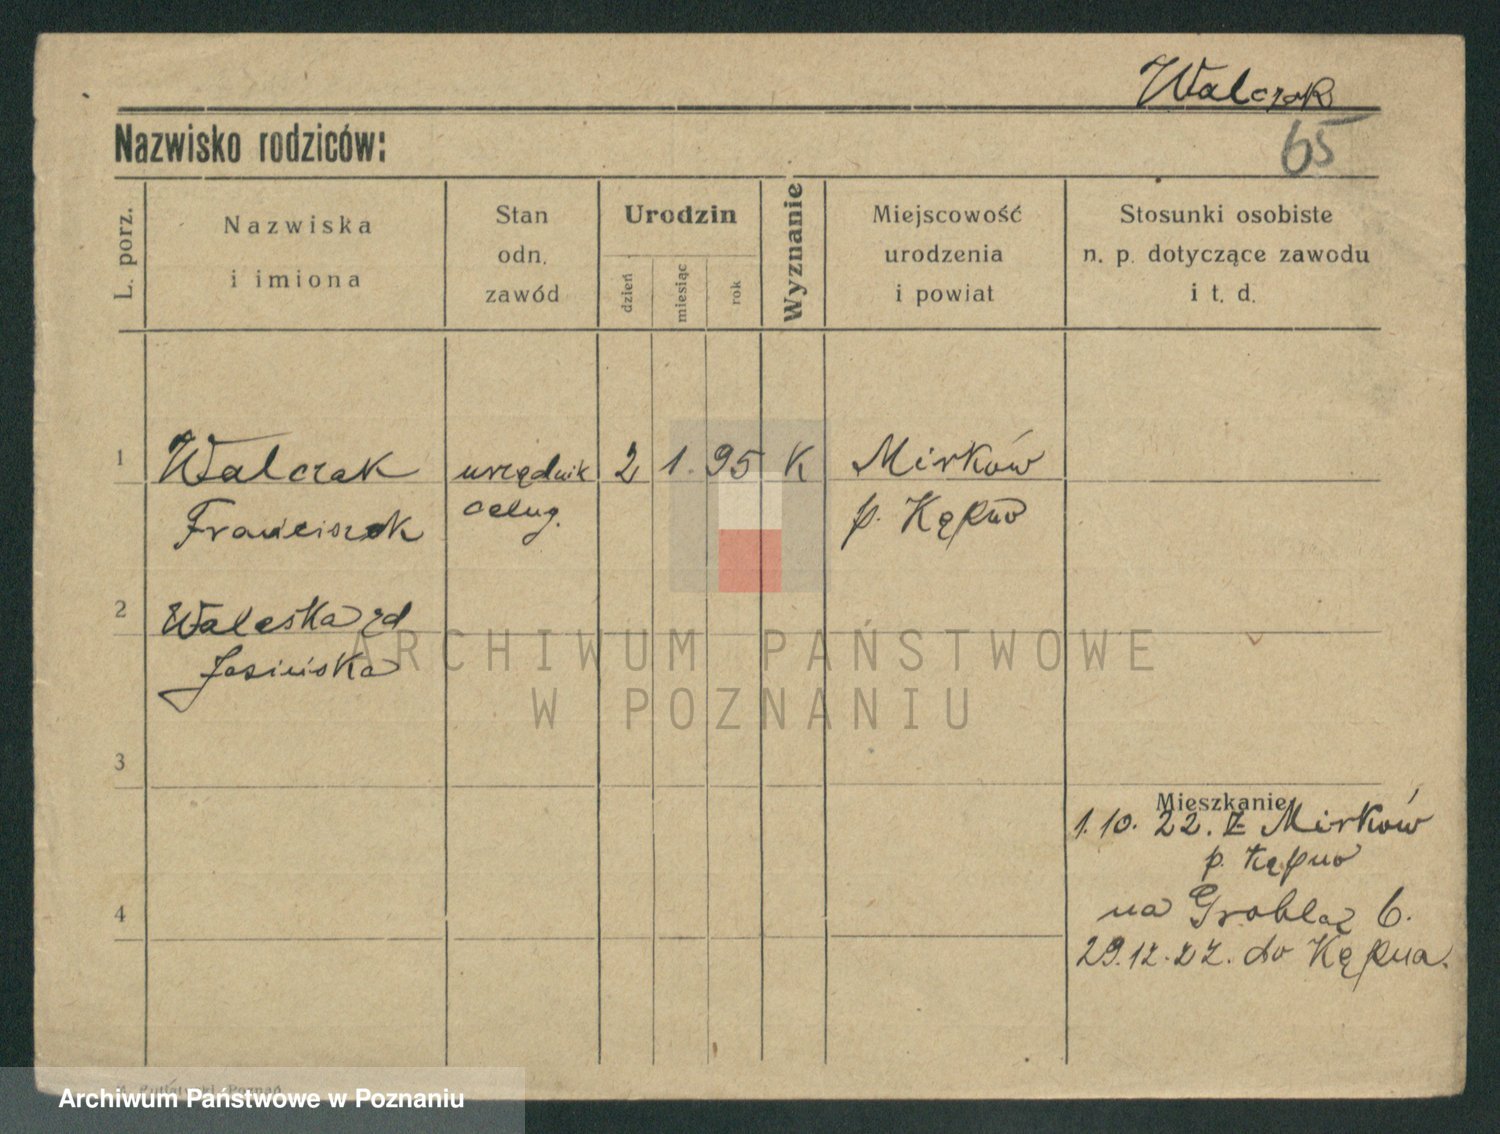 Walczak
65
Nazwisko rodziców:
L. porz.
Nazwiska
i imiona
Stan
odn.
zawód
Urodzin
dzień
miesiąc
rok
Wyznanie
Miejscowość
urodzenia
i powiat
Stosunki osobiste
n. p. dotyczące zawodu
i t. d.
1 Walczak urzędnik 2 1. 95 K Mirków
Franciszek celny. p. Kępno
2 Waleska zd
Jasińska
3
Mieszkanie
1. 10. 22. Z Mirków
p. Kępno
4
na Groblaz 6.
29.12.22. do Kępna.
ARCHIWUM PAŃSTWOWE
W POZNANIU
Poznań
Archiwum Państwowe w Poznaniu